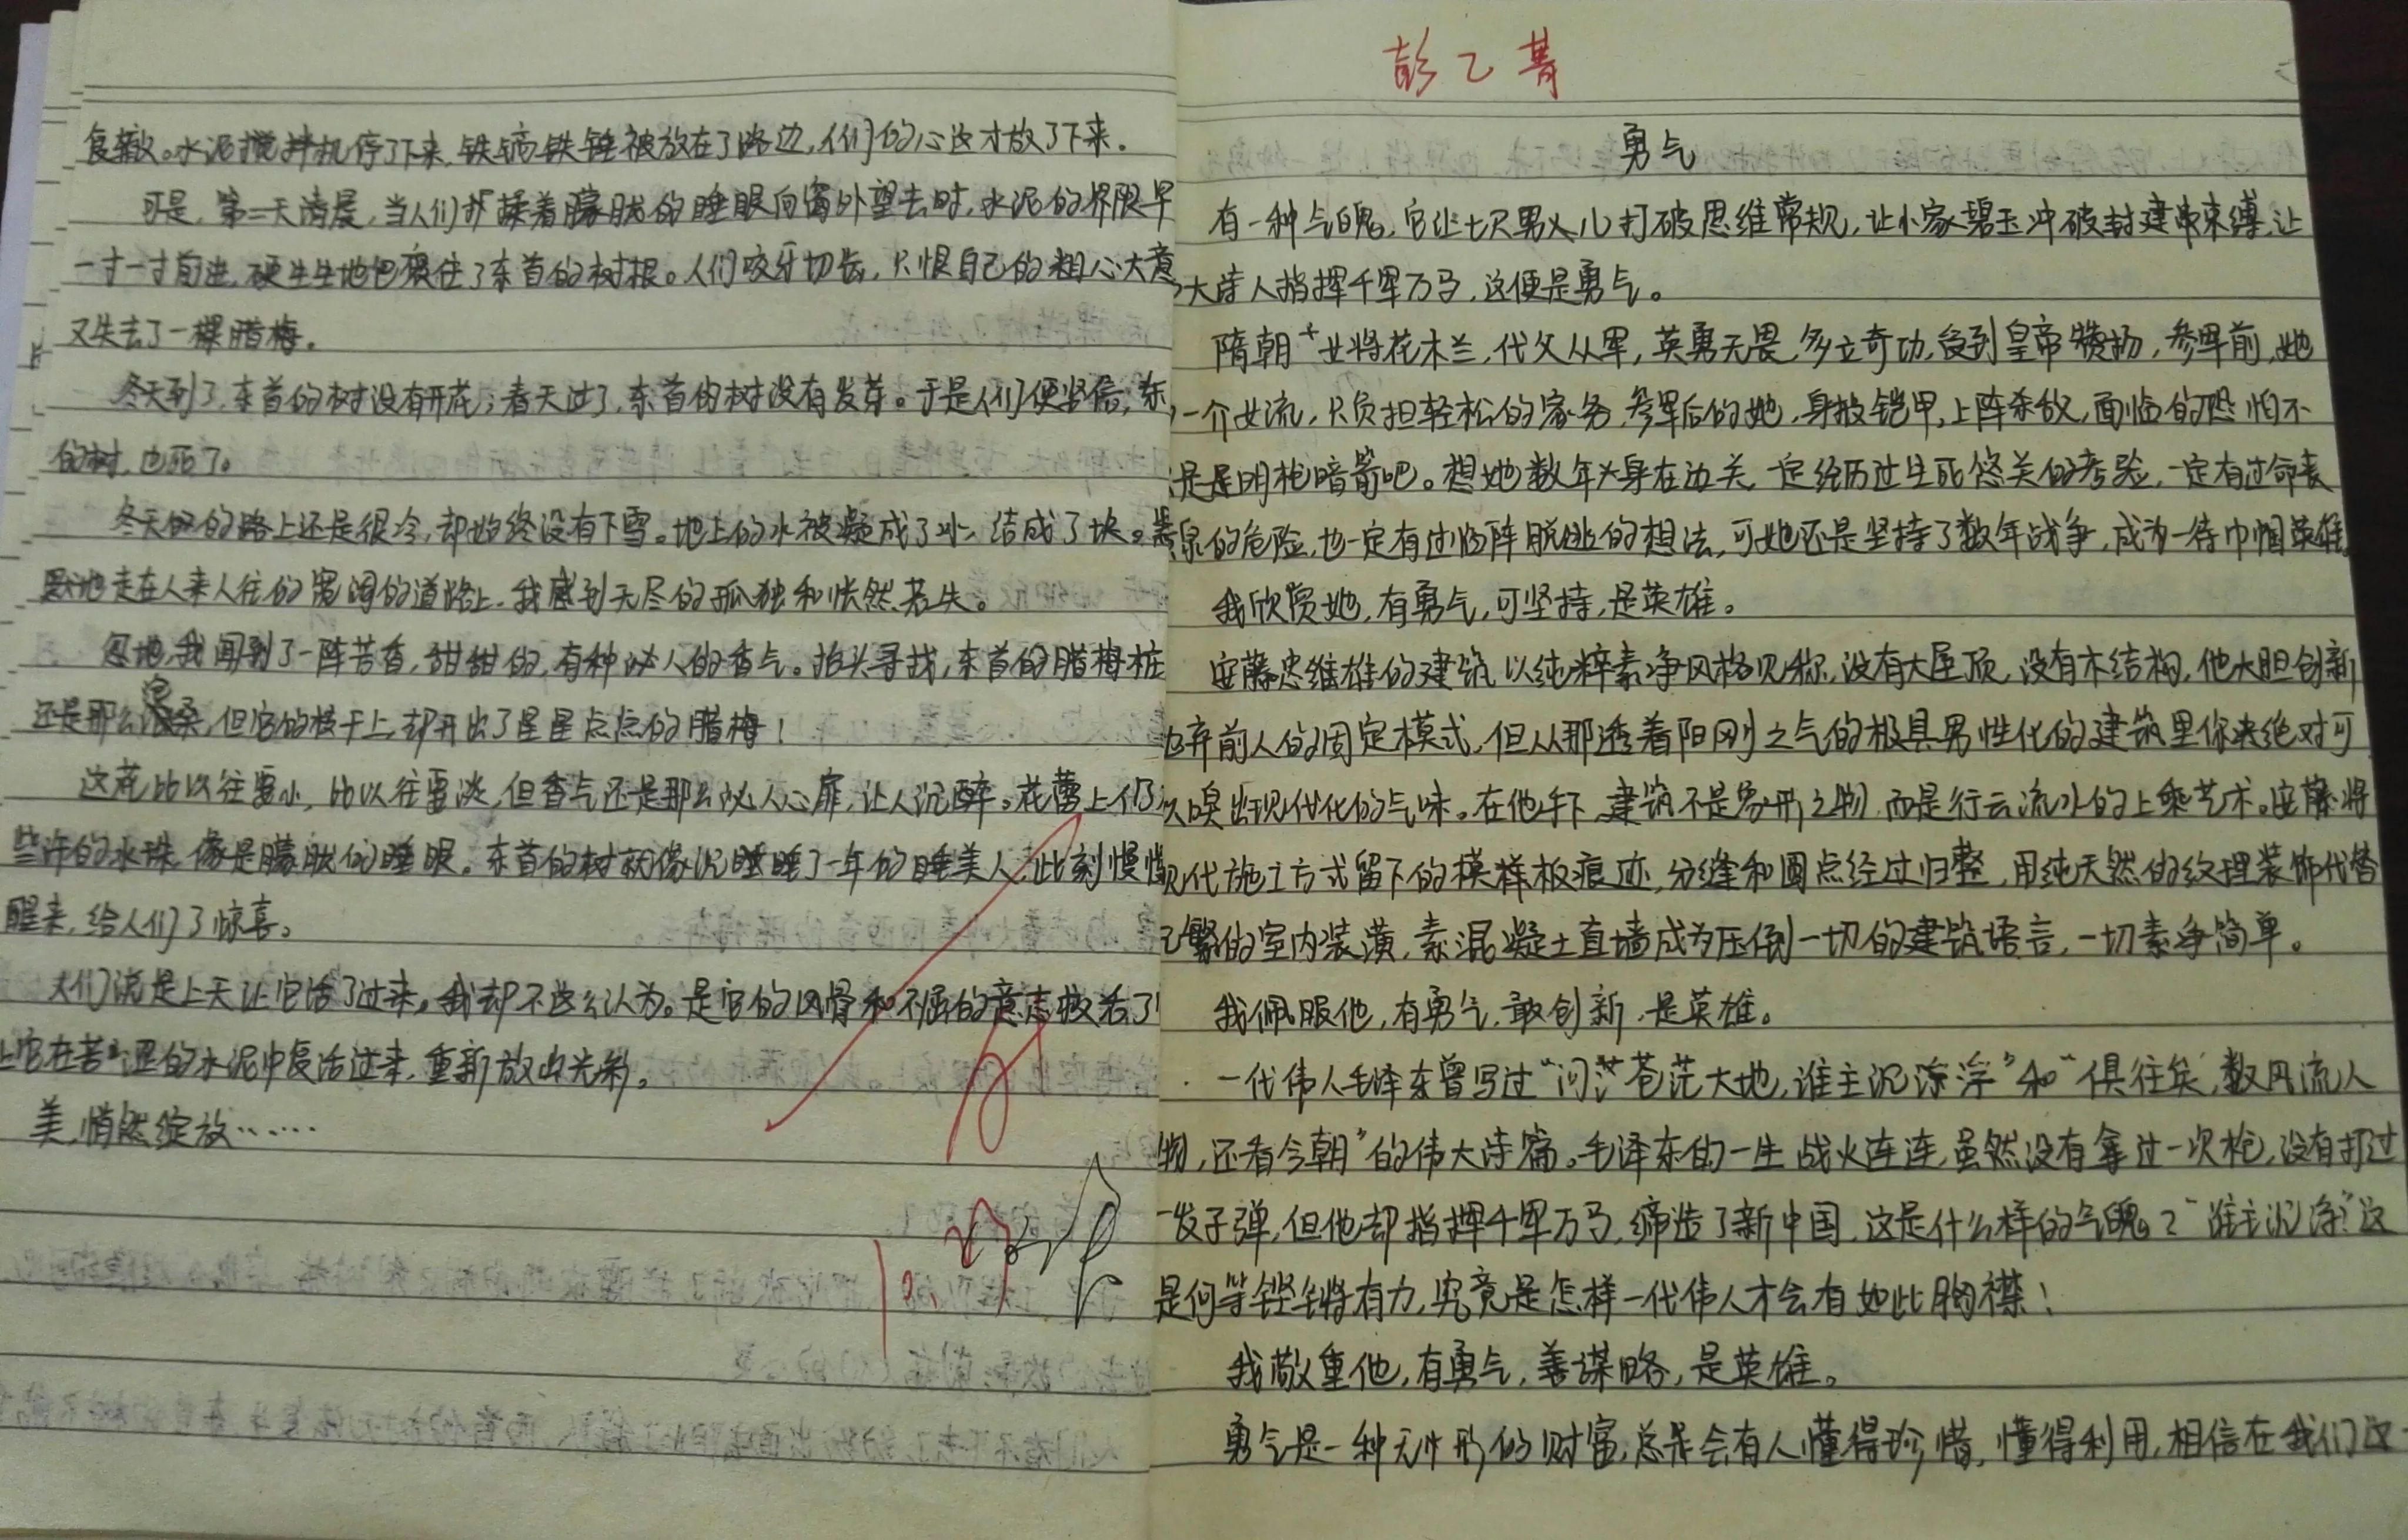 复辙。水泥搅拌机停了下来,铁镐铁锤被放在了路边,人们的心这才放了下来。
可是,第二天清晨,当人们揉着朦胧的睡眼向窗外望去时,水泥的界限早
一寸一寸前进,硬生生地包裹住了东首的树根。人们咬牙切齿,只恨自己的粗心大意
又失去了一棵腊梅。
冬天到了,东首的树没有开花;春天过了,东首的树没有发芽。于是人们便坚信,东
的树,也死了。
冬天的路上还是很冷,却始终没有下雪。地上的水被凝成了冰,结成了块。
默地走在人来人往的宽阔的道路上,我感到无尽的孤独和怅然若失。
忽地,我闻到了一阵苦香,甜甜的,有种沁人的香气。抬头寻找,东首的腊梅桩
还是那么沧桑,但它的枝干上,却开出了星星点点的腊梅!
这花比以往要小,比以往要淡,但香气还是那么沁人心扉,让人沉醉。花蕾上仍
些许的水珠,像是朦胧的睡眼。东首的树就像沉睡睡了一年的睡美人,此刻慢慢
醒来,给人们了惊喜。
人们说是上天让它活了过来。我却不这么认为。是它的风骨和不屈的意志救活了
让它在苦涩的水泥中复活过来,重新放出光彩。
美,悄然绽放……
彭乙菁
勇气
有一种气魄,它让七尺男儿打破思维常规,让小家碧玉冲破封建束缚,让
大诗人指挥千军万马,这便是勇气。
隋朝女将花木兰,代父从军,英勇无畏,多立奇功,受到皇帝赞扬,参军前,她
一介女流,只负担轻松的家务,参军后的她,身披铠甲,上阵杀敌,面临的恐怕不
是是明枪暗箭吧。想她数年身在边关,一定经历过生死悠关的考验,一定有过命丧
泉的危险,也一定有过临阵脱逃的想法,可她还是坚持了数年战争,成为一待巾帼英雄
我欣赏她,有勇气,可坚持,是英雄。
安藤忠雄的建筑以纯粹素净风格见称,没有大屋顶,没有木结构,他大胆创新
弃前人的固定模式,但从那透着阳刚之气的极具男性化的建筑里你绝对可
以嗅出现代化的气味。在他手下,建筑不是象形之物,而是行云流水的上乘艺术。安藤将
现代施工方式留下的模样板痕迹,分缝和圆点经过归整,用纯天然的纹理装饰代替
繁的室内装潢,素混凝土直墙成为压倒一切的建筑语言,一切素净简单。
我佩服他,有勇气,敢创新,是英雄。
一代伟人毛泽东曾写过“问苍茫大地,谁主沉浮”和“俱往矣,数风流人
物,还看今朝”的伟大诗篇。毛泽东的一生战火连连,虽然没有拿过一次枪,没有打过
一发子弹,但他却指挥千军万马,缔造了新中国,这是什么样的气魄?“谁主沉浮”这
是何等铿锵有力,究竟是怎样一代伟人才会有如此胸襟!
我敬重他,有勇气,善谋略,是英雄。
勇气是一种无形的财富,总是会有人懂得珍惜,懂得利用,相信在我们这